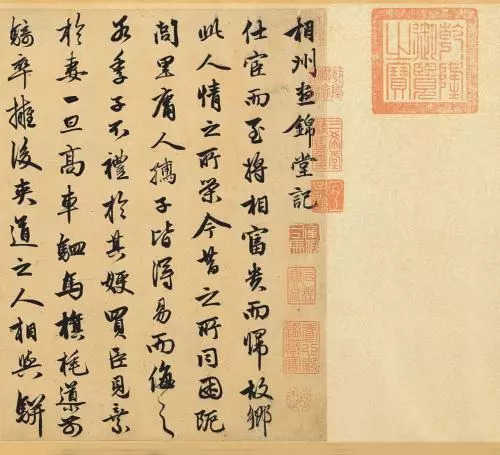 乾隆御覽之寶
相州晝錦堂記
仕宦而至將相富貴而歸故鄉
此人情之所榮今昔之所同困阨
閭里庸人孺子皆得易而侮之
若季子不禮於其嫂買臣見棄
於妻一旦高車駟馬旗旄導前
騎卒擁後夾道之人相與駢